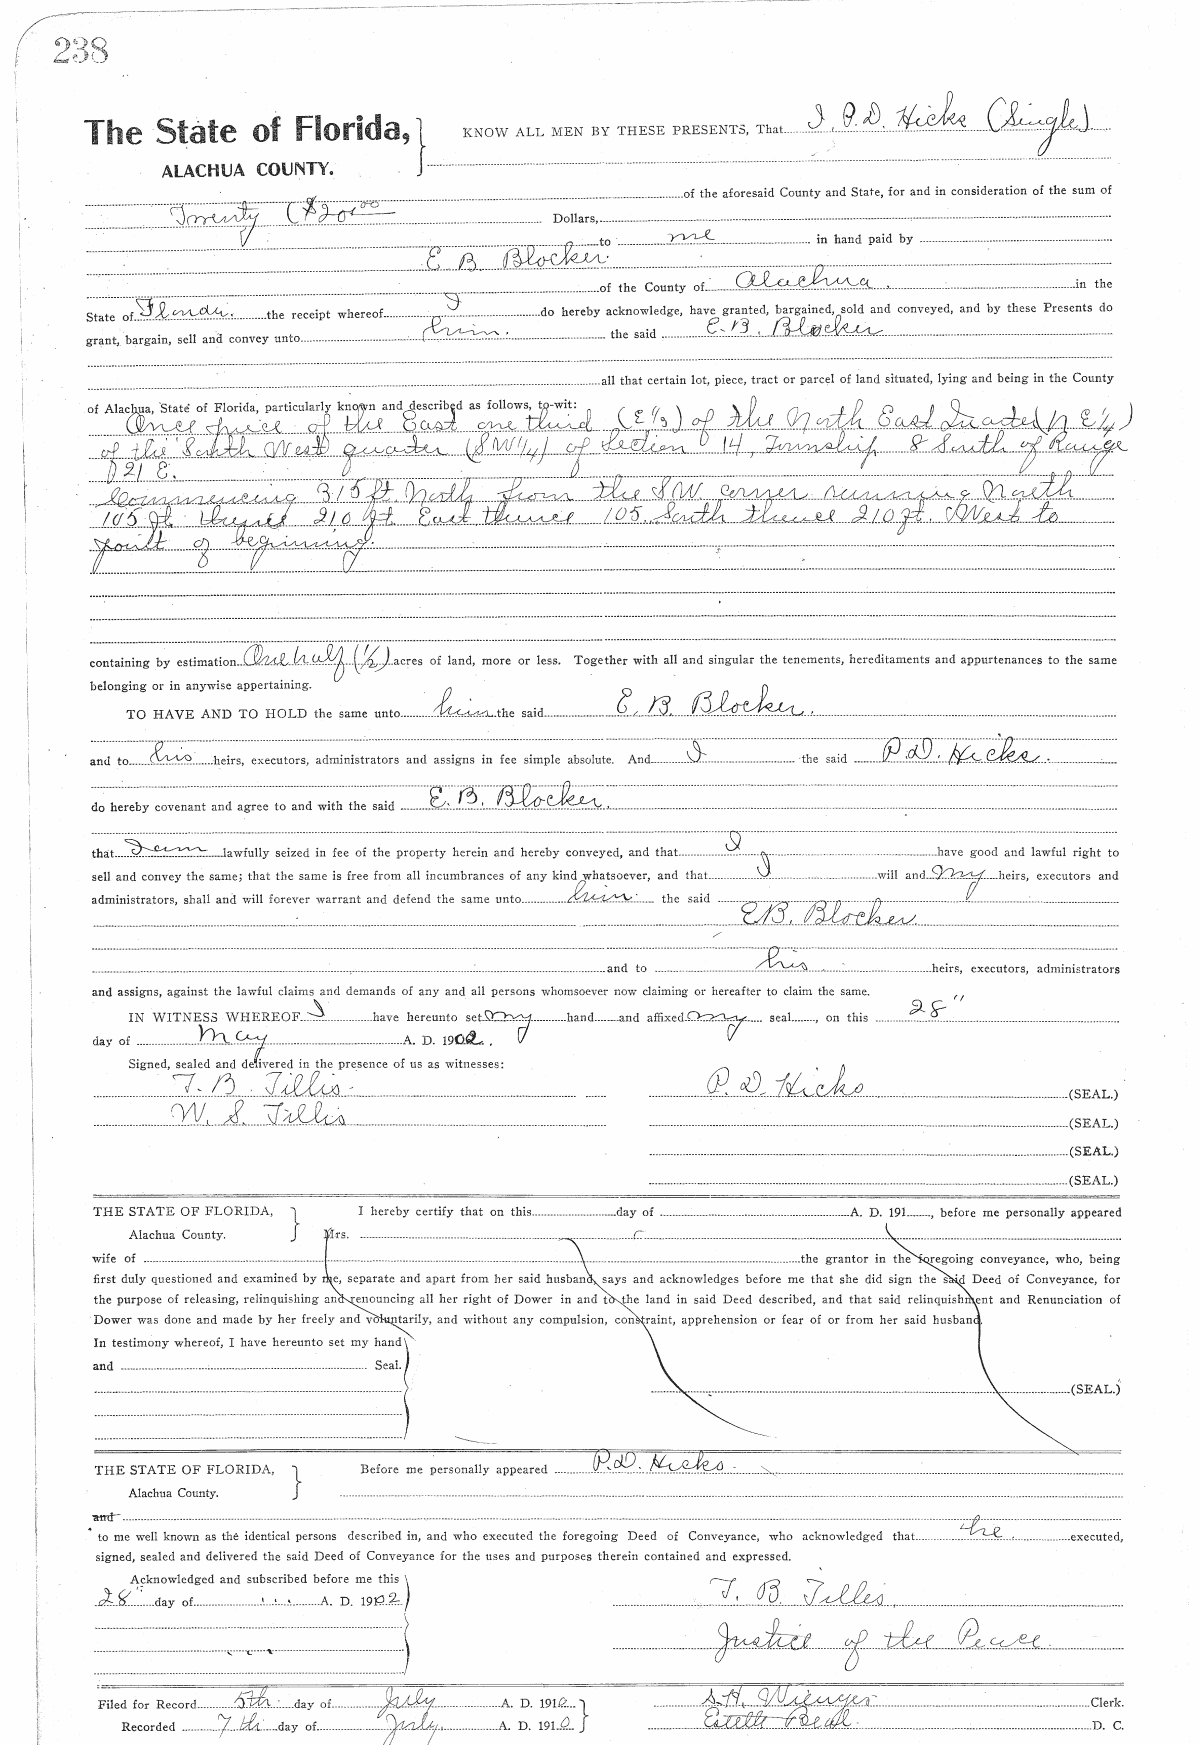 238
The State of Florida,
ALACHUA COUNTY.
KNOW ALL MEN BY THESE PRESENTS, That I, P.D. Hicks (Single)
of the aforesaid County and State, for and in consideration of the sum of
Twenty ($20.00 Dollars,
to me in hand paid by
E B Blocker
of the County of Alachua in the
State of Florida. the receipt whereof I do hereby acknowledge, have granted, bargained, sold and conveyed, and by these Presents do
grant, bargain, sell and convey unto him. the said E.B. Blocker
all that certain lot, piece, tract or parcel of land situated, lying and being in the County
of Alachua, State of Florida, particularly known and described as follows, to-wit:
Once piece of the East one third (E 1/3) of the North East Quarter (N E 1/4)
of the South West quarter (SW 1/4) of Section 14, Township 8 South of Range
21 E.
Commencing 315 ft North from the SW corner running North
105 ft. thence 210 ft. East thence 105 South thence 210 ft. West to
point of beginning.
containing by estimation One half (1/2) acres of land, more or less. Together with all and singular the tenements, hereditaments and appurtenances to the same
belonging or in anywise appertaining.
TO HAVE AND TO HOLD the same unto him the said E. B. Blocker.
and to his heirs, executors, administrators and assigns in fee simple absolute. And I the said P.D. Hicks.
do hereby covenant and agree to and with the said E. B. Blocker.
that I am lawfully seized in fee of the property herein and hereby conveyed, and that I have good and lawful right to
sell and convey the same; that the same is free from all incumbrances of any kind whatsoever, and that I will and my heirs, executors and
administrators, shall and will forever warrant and defend the same unto him the said
E.B. Blocker
and to his heirs, executors, administrators
and assigns, against the lawful claims and demands of any and all persons whomsoever now claiming or hereafter to claim the same.
IN WITNESS WHEREOF I have hereunto set my hand and affixed my seal, on this 28"
day of May A. D. 1902.
Signed, sealed and delivered in the presence of us as witnesses:
T. B. Tillis P. D. Hicks (SEAL.)
W. S. Tillis (SEAL.)
(SEAL.)
(SEAL.)
THE STATE OF FLORIDA, I hereby certify that on this day of A. D. 191 , before me personally appeared
Alachua County. Mrs.
wife of the grantor in the foregoing conveyance, who, being
first duly questioned and examined by me, separate and apart from her said husband, says and acknowledges before me that she did sign the said Deed of Conveyance, for
the purpose of releasing, relinquishing and renouncing all her right of Dower in and to the land in said Deed described, and that said relinquishment and Renunciation of
Dower was done and made by her freely and voluntarily, and without any compulsion, constraint, apprehension or fear of or from her said husband.
In testimony whereof, I have hereunto set my hand
and Seal.
(SEAL.)
THE STATE OF FLORIDA, Before me personally appeared P.D. Hicks
Alachua County.
and
to me well known as the identical persons described in, and who executed the foregoing Deed of Conveyance, who acknowledged that he executed,
signed, sealed and delivered the said Deed of Conveyance for the uses and purposes therein contained and expressed.
Acknowledged and subscribed before me this
28" day of " " " A. D. 1902
T. B. Tillis
Justice of the Peace.
Filed for Record 5th day of July A. D. 1910 S.H. Wienges Clerk.
Recorded 7th day of July A. D. 1910 Estelle Beal. D. C.